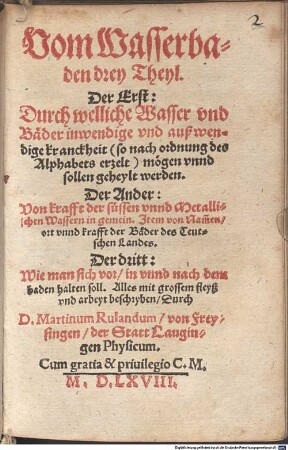 2
Vom Wasserba-
den drey Theyl.
Der Erst:
Durch welliche Wasser vnd
Bäder inwendige vnd außwen-
dige kranckheit (so nach ordnung des
Alphabets erzelt) mögen vnnd
sollen geheylt werden.
Der Ander:
Von krafft der süssen vnnd Metalli-
schen Wassern in gemein. Item von Nam̃en/
ort vnnd krafft der Bäder des Teut-
schen Landes.
Der dritt:
Wie man sich vor/ in vnnd nach dem
baden halten soll. Alles mit grossem fleyß
vnd arbeyt beschryben/ Durch
D. Martinum Rulandum/ von Frey-
singen/ der Statt Laugin-
gen Physicum.
Cum gratia & priuilegio C. M.
M. D. LXVIII.